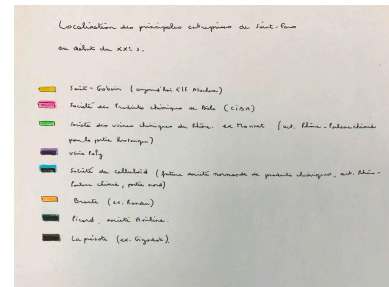 Localisation des principales entreprises de Saint-Fons
au début du XXe s.
Saint-Gobain (aujourd'hui Elf Atochem)
Société des Produits chimiques de Bâle (CIBA)
Société des usines chimiques du Rhône. ex Monnet (act. Rhône-Poulenc chimie
pour la partie historique)
Société du celluloïd (future société normande de produits chimiques, act. Rhône-
Poulenc chimie, partie nord)
(ex. Ronan)
Picard, société
La (ex. Gignoux).